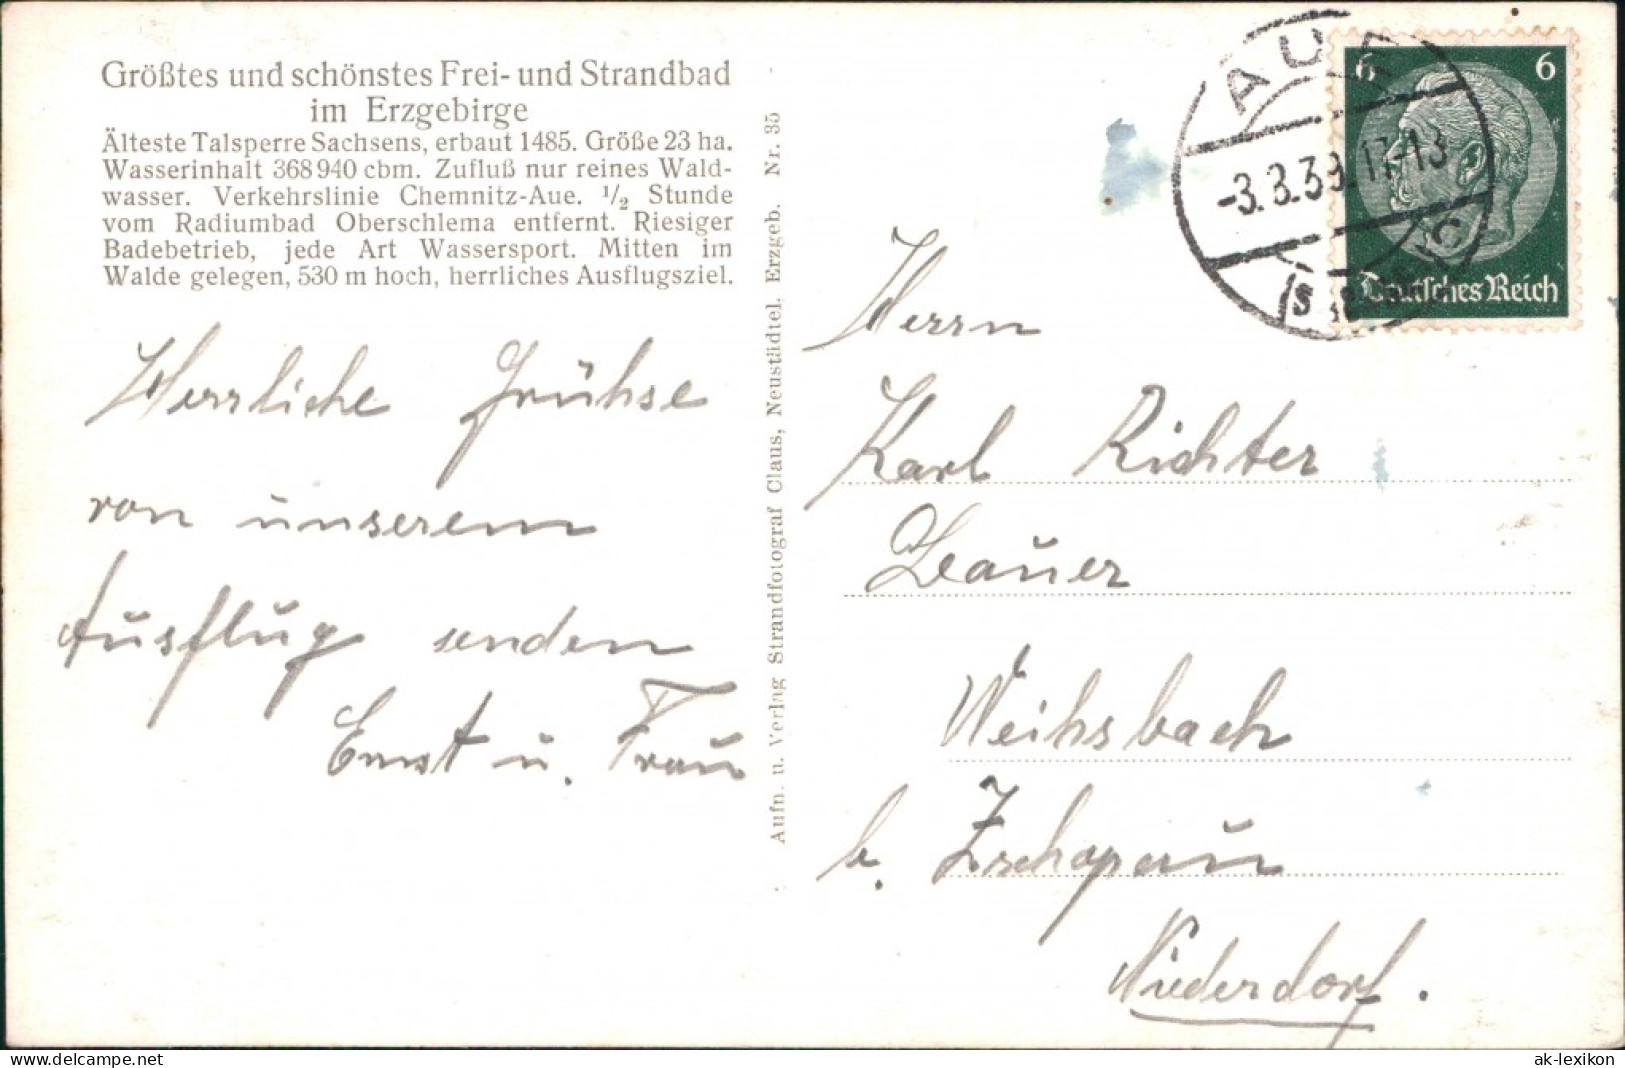 Größtes und schönstes Frei- und Strandbad
im Erzgebirge
Älteste Talsperre Sachsens, erbaut 1485. Größe 23 ha.
Wasserinhalt 368 940 cbm. Zufluß nur reines Wald-
wasser. Verkehrslinie Chemnitz-Aue. 1/2 Stunde
vom Radiumbad Oberschlema entfernt. Riesiger
Badebetrieb, jede Art Wassersport. Mitten im
Walde gelegen, 530 m hoch, herrliches Ausflugsziel.
Herrliche Grühse
von unserem
Ausflug senden
Ernst u. Frau
Aufn. u. Verlag Strandfotograf Claus, Neustädtel, Erzgeb. Nr. 35
AUE
6 6
Deutsches Reich
Herrn
Karl Richter
Bauer
Weihsbach
b. Zschopau
Niederdorf.
delcampe.net
ak-lexikon